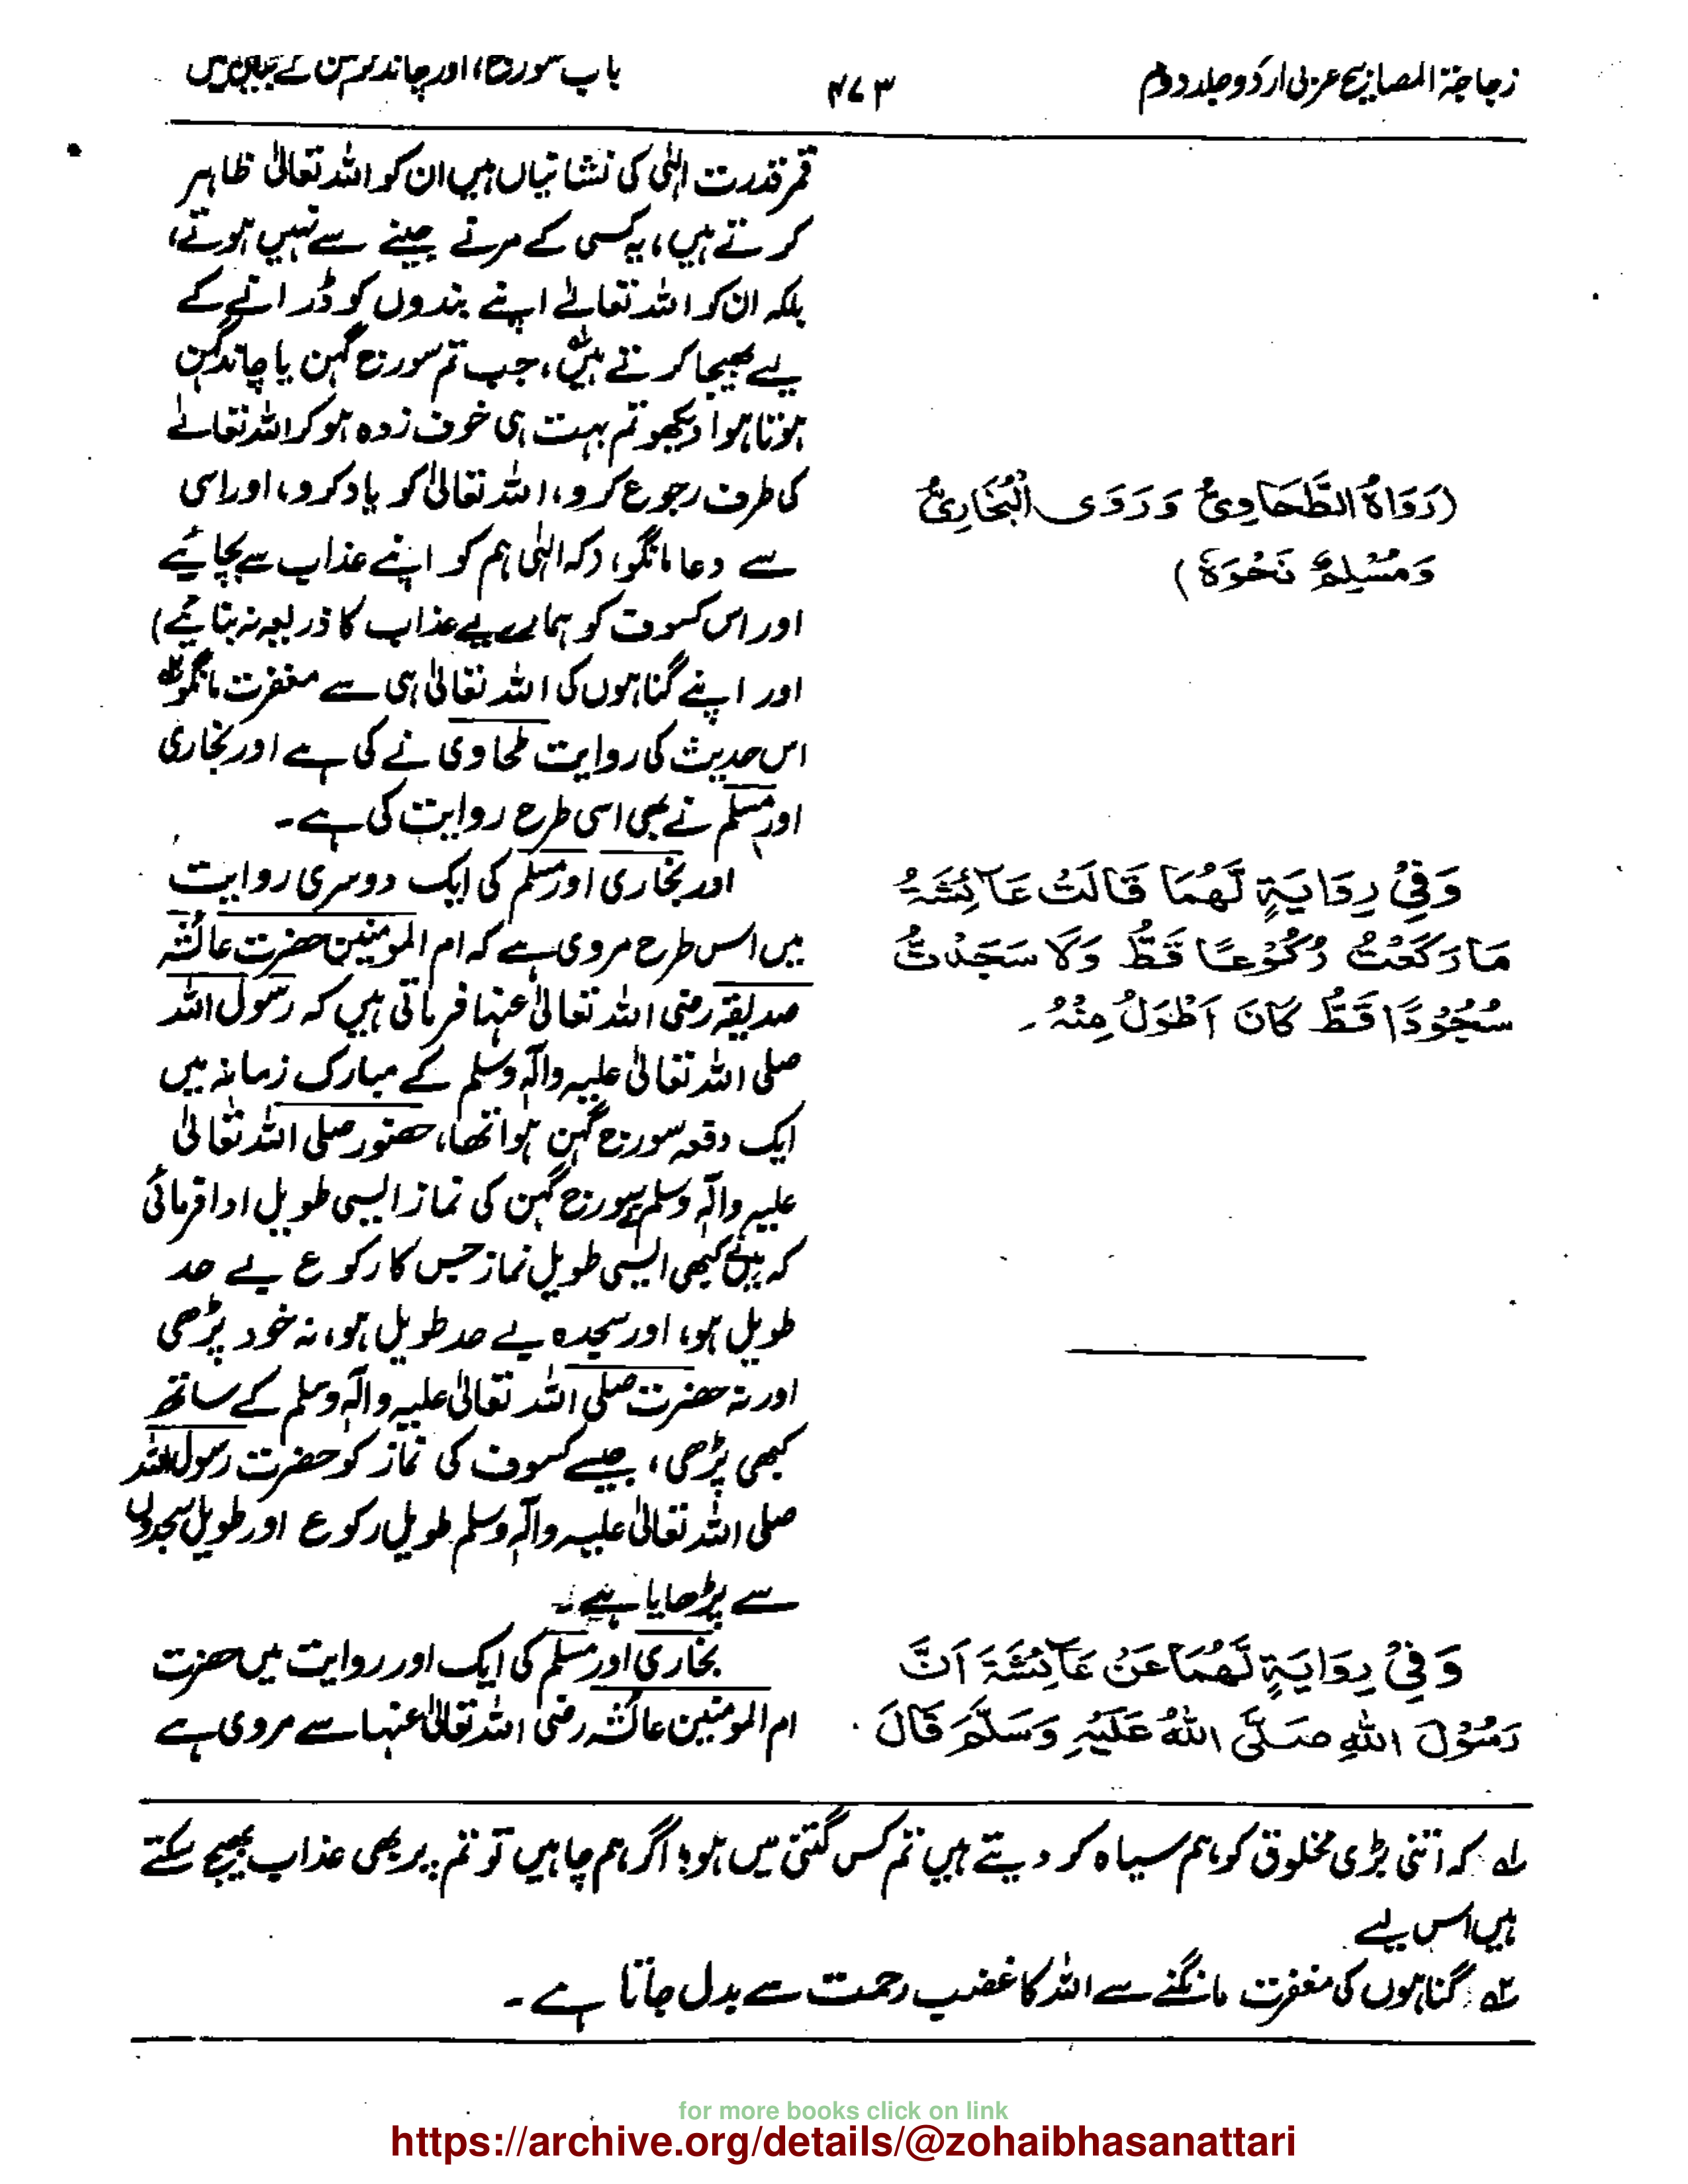 زجاجۃ المصابیح عربی اردو جلد دوم
۴۷۳
باب سورج، اور چاند گرہن کے بیان میں
(رَوَاہُ الطَّحَاوِیُّ وَرَوَی الْبُخَارِیُّ
وَمُسْلِمٌ نَحْوَہٗ)
وَفِیْ رِوَایَۃٍ لَّھُمَا قَالَتْ عَآئِشَۃُ
مَا رَکَعْتُ رُکُوْعًا قَطُّ وَلَا سَجَدْتُّ
سُجُوْدًا قَطُّ کَانَ اَطْوَلُ مِنْہُ۔
وَفِیْ رِوَایَۃٍ لَّھُمَا عَنْ عَآئِشَۃَ اَنَّ
رَسُوْلَ اللّٰہِ صَلَّی اللّٰہُ عَلَیْہِ وَسَلَّمَ قَالَ
قمر قدرت الٰہی کی نشانیاں ہیں ان کو اللہ تعالیٰ ظاہر
کرتے ہیں، یہ کسی کے مرنے جینے سے نہیں ہوتے،
بلکہ ان کو اللہ تعالےٰ اپنے بندوں کو ڈرانے کے
لیے بھیجا کرتے ہیں، جب تم سورج گہن یا چاند گہن
ہوتا ہوا دیکھو تم بہت ہی خوف زدہ ہو کر اللہ تعالےٰ
کی طرف رجوع کرو، اللہ تعالیٰ کو یاد کرو، اور اسی
سے دعا مانگو، (کہ الٰہی ہم کو اپنے عذاب سے بچائیے
اور اس کسوف کو ہمارے لیے عذاب کا ذریعہ نہ بنائیے)
اور اپنے گناہوں کی اللہ تعالیٰ ہی سے مغفرت مانگو
اس حدیث کی روایت طحاوی نے کی ہے اور بخاری
اور مسلم نے بھی اسی طرح روایت کی ہے۔
اور بخاری اور مسلم کی ایک دوسری روایت
میں اس طرح مروی ہے کہ ام المومنین حضرت عائشہ
صدیقہ رضی اللہ تعالیٰ عنہا فرماتی ہیں کہ رسول اللہ
صلی اللہ تعالیٰ علیہ والہٖ وسلم کے مبارک زمانہ میں
ایک دفعہ سورج گہن ہوا تھا، حضور صلی اللہ تعالیٰ
علیہ والہٖ وسلم نے سورج گہن کی نماز ایسی طویل ادا فرمائی
کہ میں نے کبھی ایسی طویل نماز جس کا رکوع بے حد
طویل ہو، اور سجدہ بے حد طویل ہو، نہ خود پڑھی
اور نہ حضرت صلی اللہ تعالیٰ علیہ والہٖ وسلم کے ساتھ
کبھی پڑھی، جیسے کسوف کی نماز کو حضرت رسول اللہ
صلی اللہ تعالیٰ علیہ والہٖ وسلم طویل رکوع اور طویل سجدوں
سے پڑھایا ہے۔
بخاری اور مسلم کی ایک اور روایت میں حضرت
ام المومنین عائشہ رضی اللہ تعالیٰ عنہا سے مروی ہے
؎۱ کہ اتنی بڑی مخلوق کو ہم سیاہ کر دیتے ہیں تم کس گنتی میں ہو؟ اگر ہم چاہیں تو تم پر بھی عذاب بھیج سکتے
ہیں اس لیے
؎۲ گناہوں کی مغفرت مانگنے سے اللہ کا غضب رحمت سے بدل جاتا ہے۔
for more books click on link
https://archive.org/details/@zohaibhasanattari